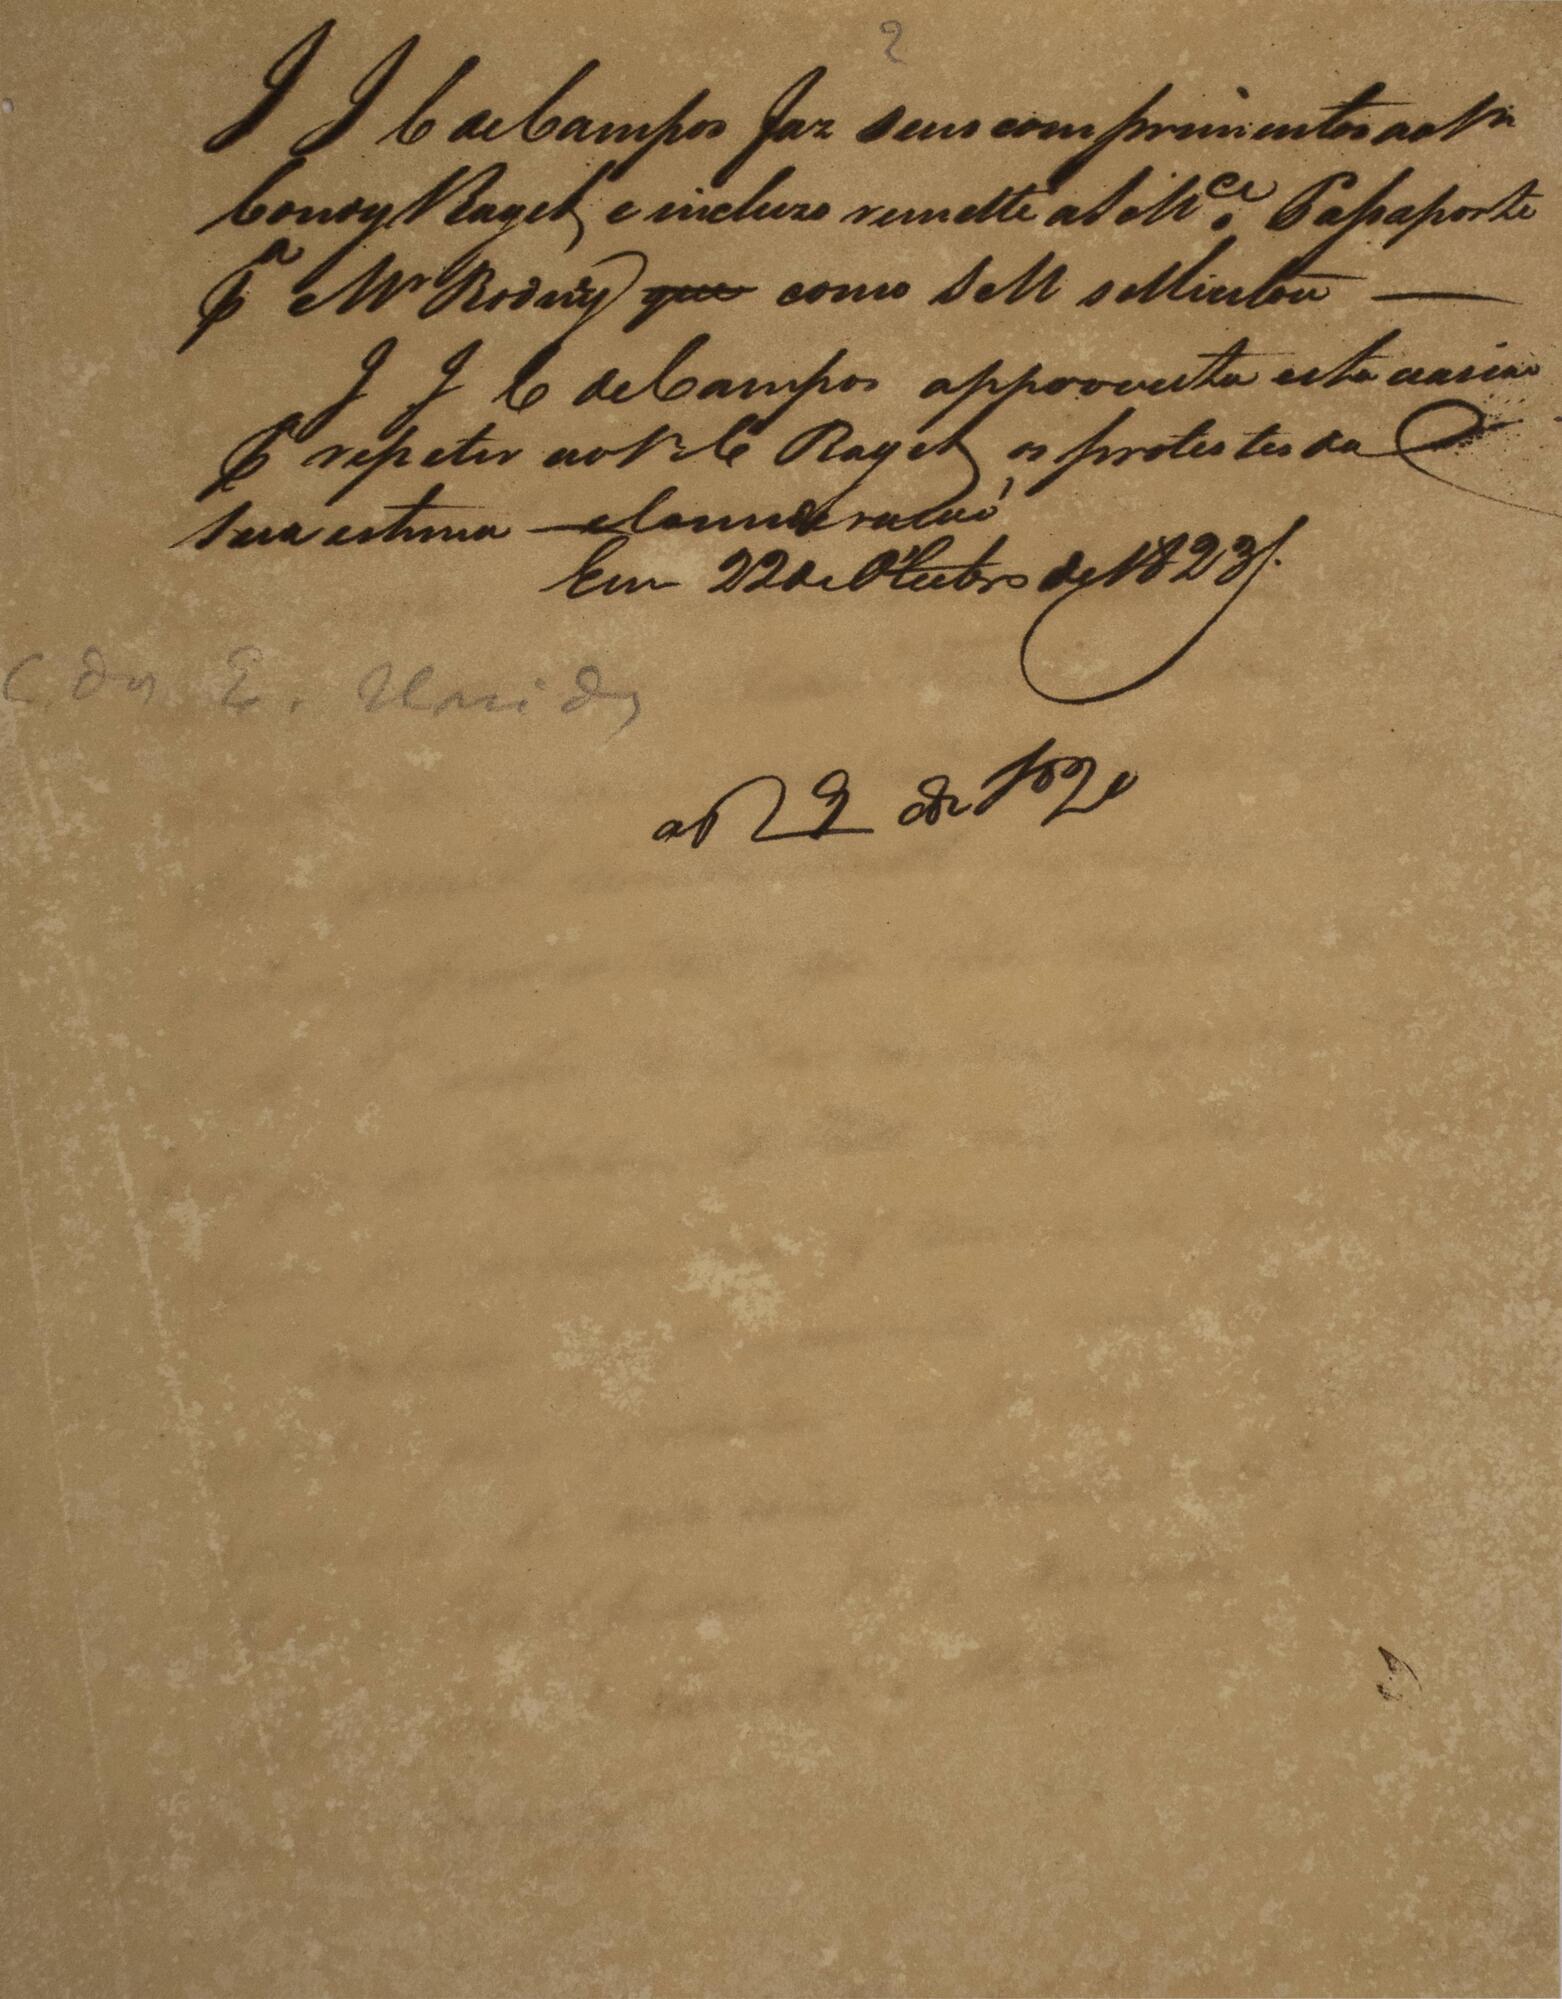 2
J J C de Campos faz seus comprimentos ao Sr
Condy Raget, e incluzo remette a S Mce. Passaporte
Pa Mr Rodney que como S M sollicitou —
J J C de Campos approveita esta occasiao
Pa repetir ao Sr C Raget os protestos da
sua estima e Consideração
Em 22 de Outubro de 1823/.
C. dos E. Unidos